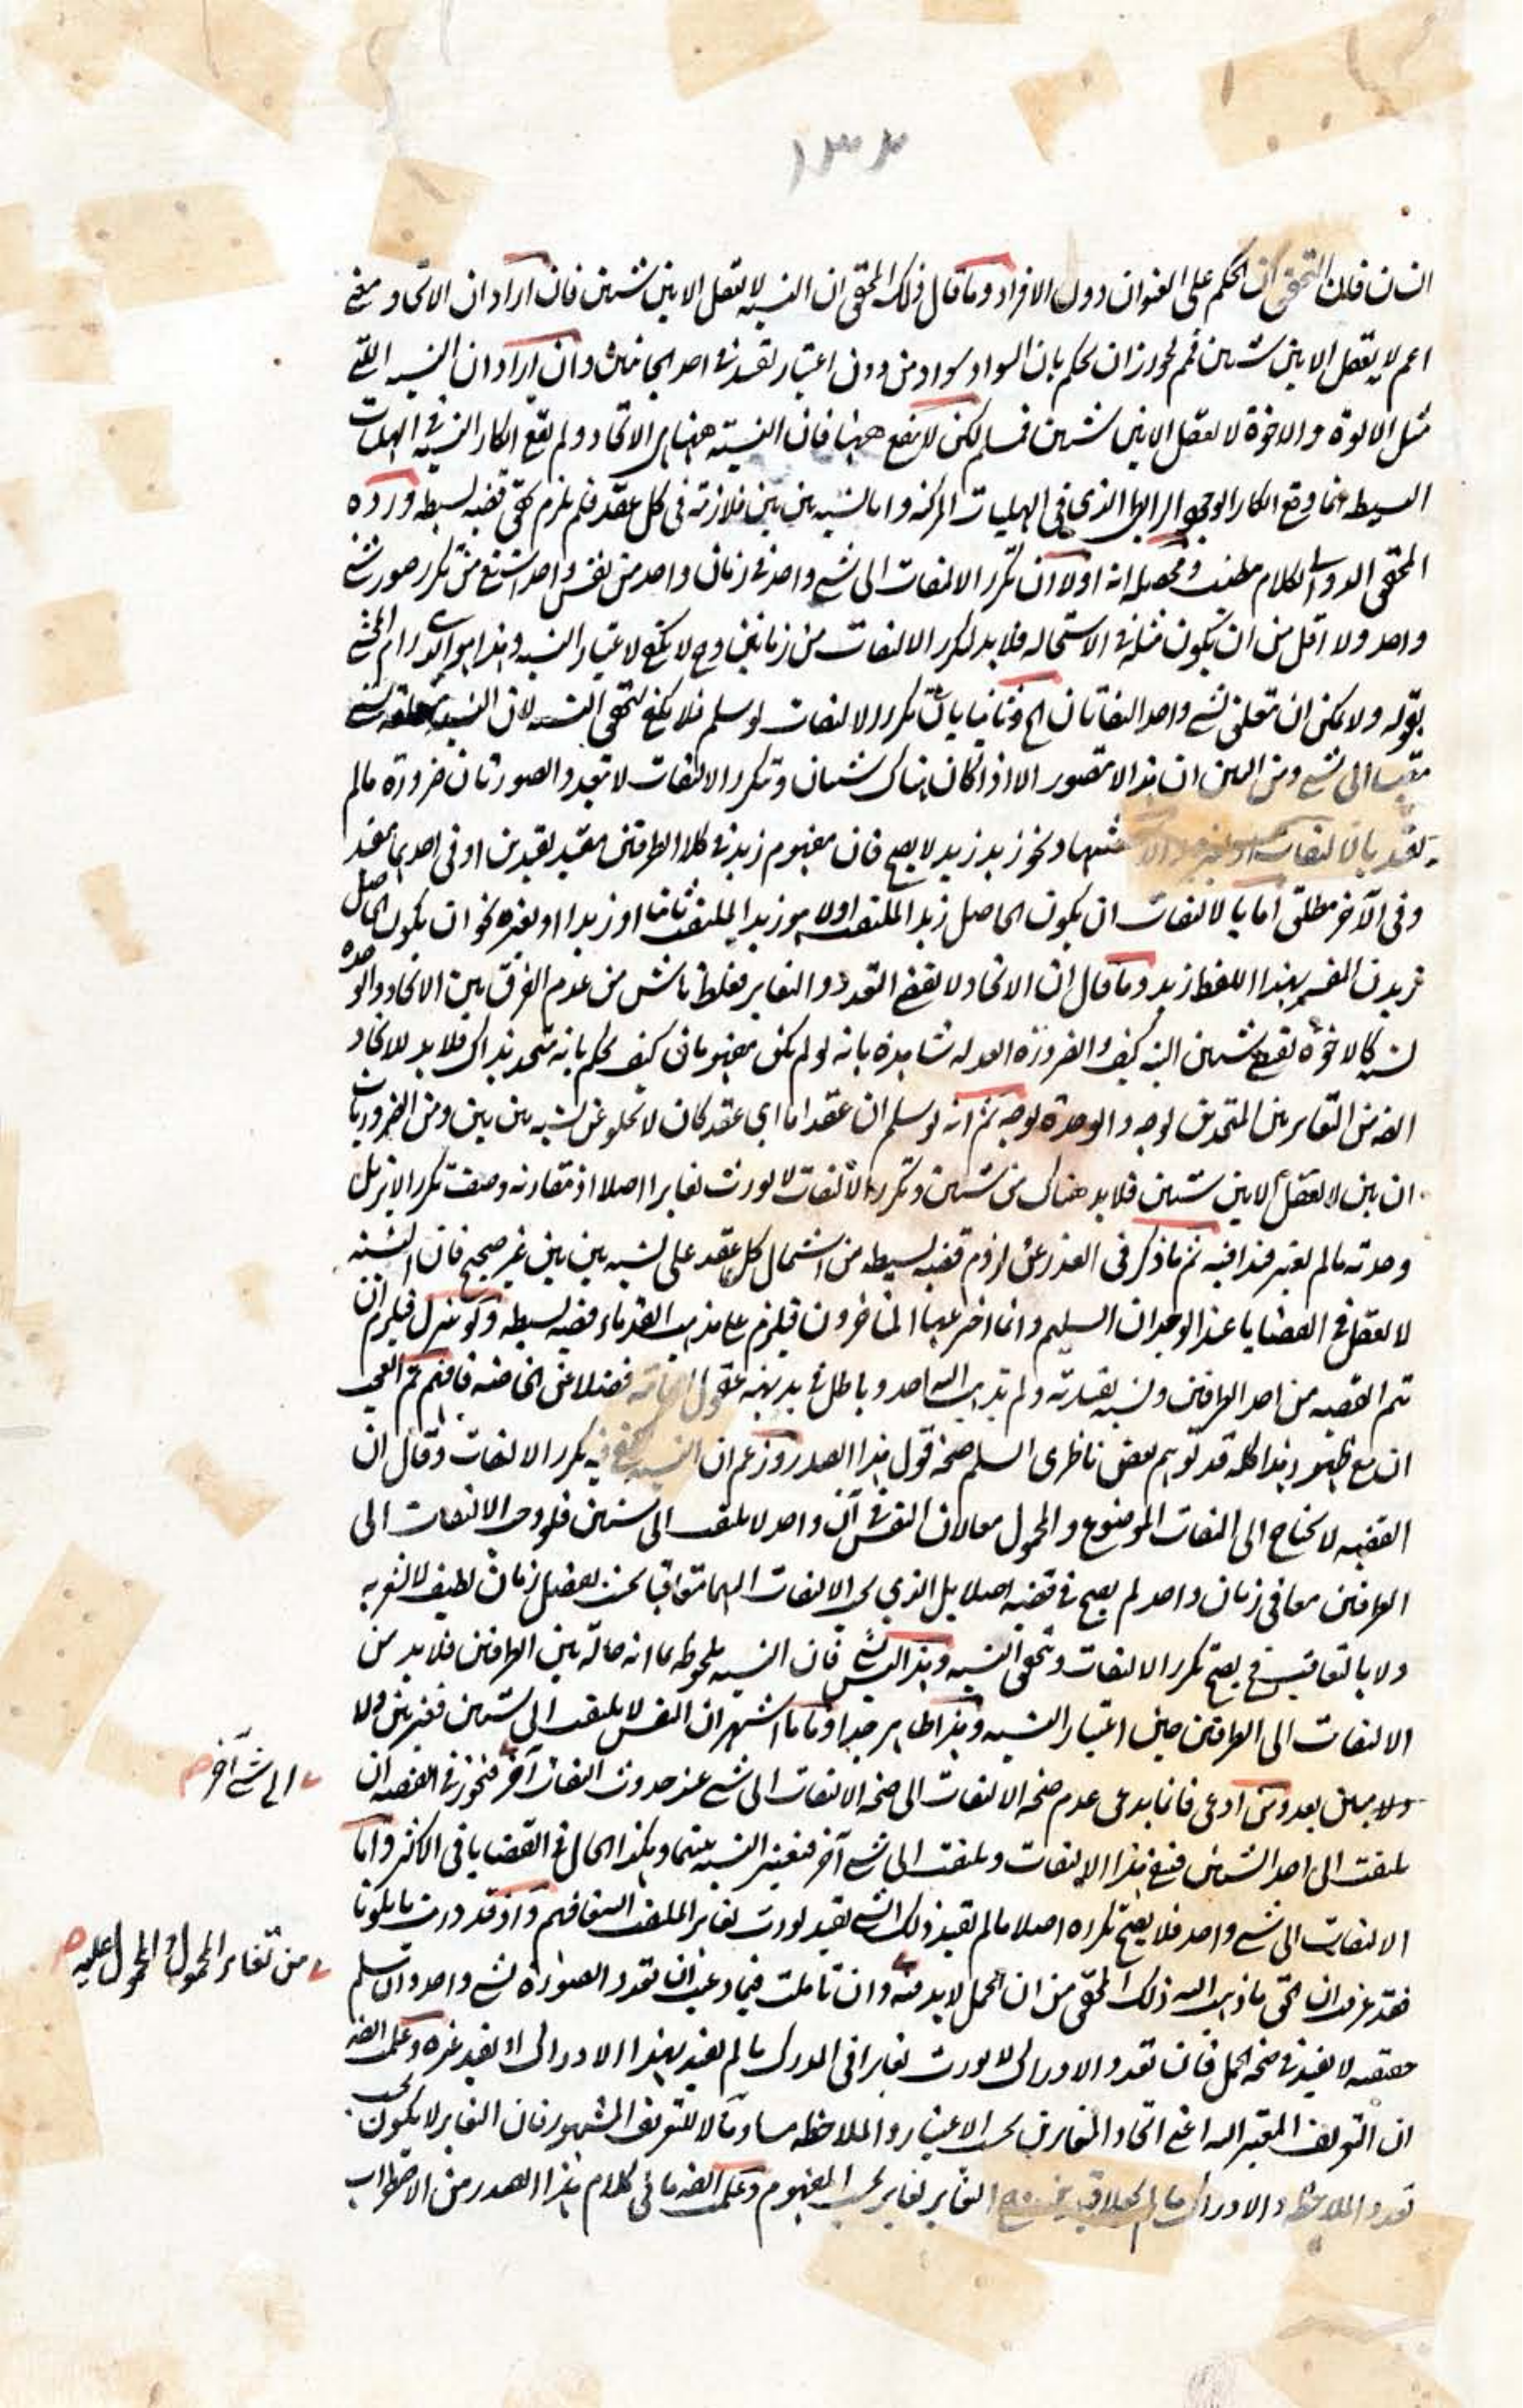 ١٣٢
فان التحقيق ان الحكم على العنوان دون الافراد وما قال ذلك المحقق ان النسبة لا تعقل الا بين شيئين فان اراد ان الاتحاد
اعم لا يعقل الا بين شيئين فمم لجواز ان يحكم بان السواد سواد من دون اعتبار تقييد في احد الجانبين وان اراد ان النسبة التي
مثل الابوة والاخوة لا تعقل الا بين شيئين فمسلم لكن لا ينفع ههنا فان النسبة ههنا هي الاتحاد ولم يقع انكار النسبة في الهليات
البسيطة انما وقع انكار الوجود الرابطي الذي في الهليات المركبة واما النسبة بين بين فلازمة في كل عقد فلم يلزم تحقق قضية بسيطة ورده
المحقق الدواني بكلام مطنب ومحصله انه اولا ان تكرر الالتفات الى شيء واحد في زمان واحد من نفس واحد اشنع من تكرر صورة شيء
واحد ولا اقل من ان يكون مثله في الاستحالة فلا بد لتكرر الالتفات من زمانين وح لا يكفي لاعتبار النسبة وهذا هو الذي رام المحشي
بقوله ولا يمكن ان يتعلق بشيء واحد التفاتان الخ وثانيا بان تكرر الالتفات لو سلم فلا يكفي لتحقق النسبة لان النسبة
الى شيء ومن البين ان هذا لا يتصور الا اذا كان هناك شيئان وتكرر الالتفات لا يتعدد الصورتان ضرورة مالم
يقيد بالالتفات ونحو زيد زيد لا يصح فان مفهوم زيد في كلا الطرفين مقيد بقيدين او في احدهما مقيد
وفي الآخر مطلق اما بالالتفات ان يكون الحاصل زيد الملتفت اولا هو زيد الملتفت ثانيا او زيد او بغيره نحو ان يكون الحاصل
زيد المسمى بهذا اللفظ زيد وما قال ان الاتحاد لا يقتضي التعدد والتغاير فغلط ناش من عدم الفرق بين الاتحاد والوحدة
كالاخوة تقتضي شيئين البتة كيف والضرورة العدلة شاهدة بانه لو لم يكن مفهومان كيف يحكم بانه متحد بذاك فلا بد للاتحاد
ايضه من التغاير بين المتحدين بوجه والوحدة بوجه ثم انه لو سلم ان عقدا ما اي عقد كان لا يخلو عن نسبة بين بين ومن الضروريات
ان بين لا يعقل الا بين شيئين فلا بد هناك من شيئين وتكرر الالتفات لا يورث تغايرا اصلا اذ مقارنة وصف تكرر لا يزيل
وحدته مالم يعتبر قيدا فيه ثم ما ذكر في العذر عن لزوم قضية بسيطة من اشتمال كل عقد على نسبة بين بين غير صحيح فان النسبة
لا تعقل في القضايا عند الوجدان السليم وانما اخترعها المتاخرون فيلزم على مذهب القدماء قضية بسيطة ولو تنزل فيلزم ان
تتم القضية من احد الطرفين ونسبة بقيدية ولم يذهب اليه احد وباطل في بديهة عقول العامة فضلا عن الخاصة فافهم ثم العجب
ان مع ظهور هذا كله قد توهم بعض ناظري السلم صحة قول هذا الصدر وزعم ان النسبة يكفي فيه تكرر الالتفات وقال ان
القضية لا تحتاج الى التفات الموضوع والمحمول معا لان النفس في آن واحد لا تلتفت الى شيئين فلو وجب الالتفات الى
الطرفين معا في زمان واحد لم يصح في قضية اصلا بل الذي يجب الالتفات اليهما متعاقبا بحيث يفصل زمان لطيف لا نشعر به
ولا بالتعاقب فح يصح تكرر الالتفات وتحقق النسبة وهذا ليس بشيء فان النسبة ملحوظة بما انه حالة بين الطرفين فلا بد من
الالتفات الى الطرفين حين اعتبار النسبة وهذا ظاهر جدا واما ما اشتهر ان النفس لا تلتفت الى شيئين فغير بين ولا
ولا مبين بعد ومن ادعى فانما يدعي عدم صحة الالتفات الى صحة الالتفات الى شيء عند حدوث التفات آخر فيجوز في القضية ان
يلتفت الى احد الشيئين فيبقى هذا الالتفات ويلتفت الى شيء آخر فتعتبر النسبة بينهما وهكذا الحال في القضايا في الاكثر واما
الالتفات الى شيء واحد فلا يصح تكراره اصلا مالم يقيد ذلك الشيء بقيد يورث تغاير الملتفت اليه فافهم واذ قد دريت ما تلونا
فقد عرفت ان الحق ما ذهب اليه ذلك المحقق من ان الحمل لا بد فيه وان تاملت فيما وعيت ان تعدد الصورة لشيء واحد وان سلم
حقيقة لا يفيد في صحة الحمل فان تعدد الادراك لا يورث تغايرا في المدرك مالم يقيد بهذا الادراك او بقيد غيره وعلم ايضه
ان التعريف المعتبر اليه اعني اتحاد المتغايرين بحسب الاعتبار والملاحظة مساو مآلا للتعريف المشهور فان التغاير لا يكون بحسب
تعدد الملاحظة والادراك مالم التغاير تغاير بحسب المفهوم وعلم ايضه ما في كلام هذا الصدر من الاضطراب
الى شيء آخر
من تغاير المحمول والمحمول عليه